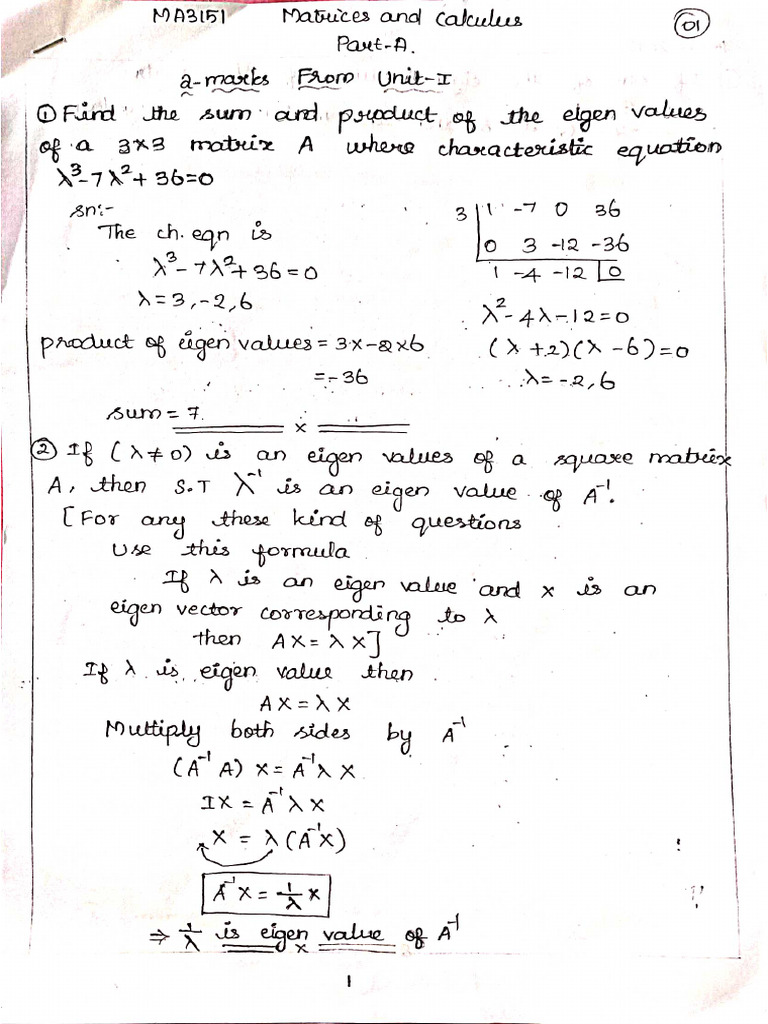 MA3151 Matrices and Calculus
01
Part-A.
2-marks From Unit-I
① Find the sum and product of the eigen values
of a 3x3 matrix A where characteristic equation
λ³-7λ²+36=0
sn:-
The ch. eqn is
λ³-7λ²+36=0
λ=3,-2,6
product of eigen values=3x-2x6
=-36
sum=7.
3 | 1 -7 0 36
0 3 -12 -36
1 -4 -12 | 0
λ²-4λ-12=0
(λ+2)(λ-6)=0
λ=-2,6
x
② If (λ≠0) is an eigen values of a square matrix
A, then S.T λ⁻¹ is an eigen value of A⁻¹.
[For any these kind of questions
Use this formula
If λ is an eigen value and x is an
eigen vector corresponding to λ
then AX=λX]
If λ is eigen value then
AX=λX
Multiply both sides by A⁻¹
(A⁻¹A) X=A⁻¹λX
IX=A⁻¹λX
X=λ(A⁻¹X)
A⁻¹X=1/λ X
⇒ 1/λ is eigen value of A⁻¹
x
1